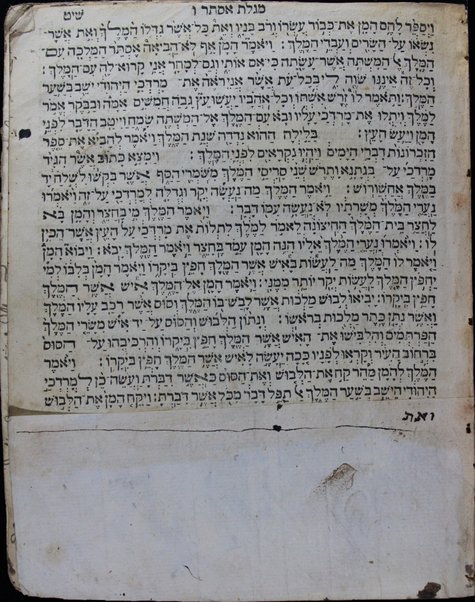 מגלת אסתר ו שיט
ויספר להם המן את־כבוד עשרו ורב בניו ואת כל־אשר גדלו המלך ואת אשר
נשאו על־השרים ועבדי המלך׃ ויאמר המן אף לא־הביאה אסתר המלכה עם־
המלך אל המשתה אשר־עשתה כי־אם אותי וגם־למחר אני קרוא־לה עם־המלך׃
וכל־זה איננו שוה לי בכל־עת אשר אני ראה את־ מרדכי היהודי ישב בשער
המלך׃ ותאמר לו זרש אשתו וכל־אהביו יעשו־עץ גבה חמשים אמה ובבקר אמר
למלך ויתלו את־מרדכי עליו ובא עם המלך אל־המשתה שמח וייטב הדבר לפני
המן ויעש העץ׃ בלילה ההוא נדדה שנת המלך ויאמר להביא את־ספר
הזכרונות דברי הימים ויהיו נקראים לפני המלך׃ וימצא כתוב אשר הגיד
מרדכי על־ בגתנא ותרש שני סריסי המלך משמרי הסף אשר בקשו לשלח יד
במלך אחשורוש׃ ויאמר המלך מה נעשה יקר וגדלה למרדכי על־זה ויאמרו
נערי המלך משרתיו לא־נעשה עמו דבר׃ ויאמר המלך מי בחצר והמן בא
לחצר בית־המלך החיצונה לאמר למלך לתלות את־מרדכי על־העץ אשר הכין
לו׃ ויאמרו נערי המלך אליו הנה המן עמד בחצר ויאמר המלך יבא׃ ויבוא המן
ויאמר לו המלך מה לעשות באיש אשר המלך חפץ ביקרו ויאמר המן בלבו למי
יחפץ המלך לעשות יקר יותר ממני׃ ויאמר המן אל־המלך איש אשר המלך
חפץ ביקרו׃ יביאו לבוש מלכות אשר לבש־בו המלך וסוס אשר רכב עליו המלך
ואשר נתן כתר מלכות בראשו׃ ונתון הלבוש והסוס על־יד איש משרי המלך
הפרתמים והלבישו את־ האיש אשר המלך חפץ ביקרו והרכיבהו על־ הסוס
ברחוב העיר וקראו לפניו ככה יעשה לאיש אשר המלך חפץ ביקרו׃ ויאמר
המלך להמן מהר קח את־הלבוש ואת־הסוס כאשר דברת ועשה כן למרדכי
היהודי היושב בשער המלך אל תפל דבר מכל אשר דברת׃ ויקח המן את־הלבוש
ואת